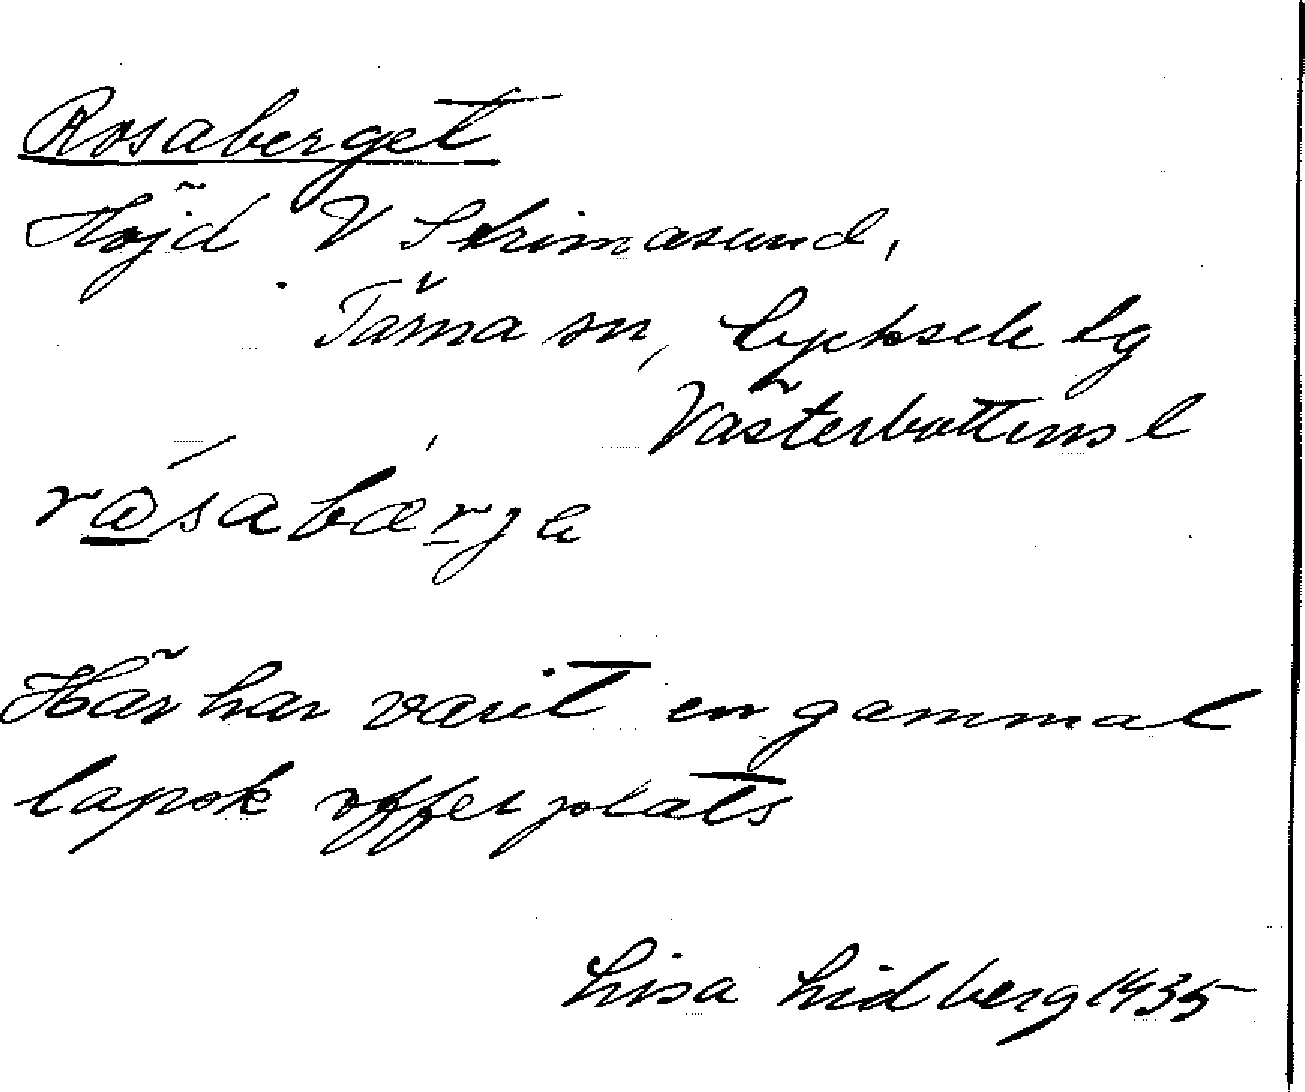 Rosaberget
Höjd V Skrimasund,
Tärna sn, Lycksele lg
Västerbottens l
råsabærja
Här har varit en gammal
lapsk offerplats
Lisa Lidberg 1935